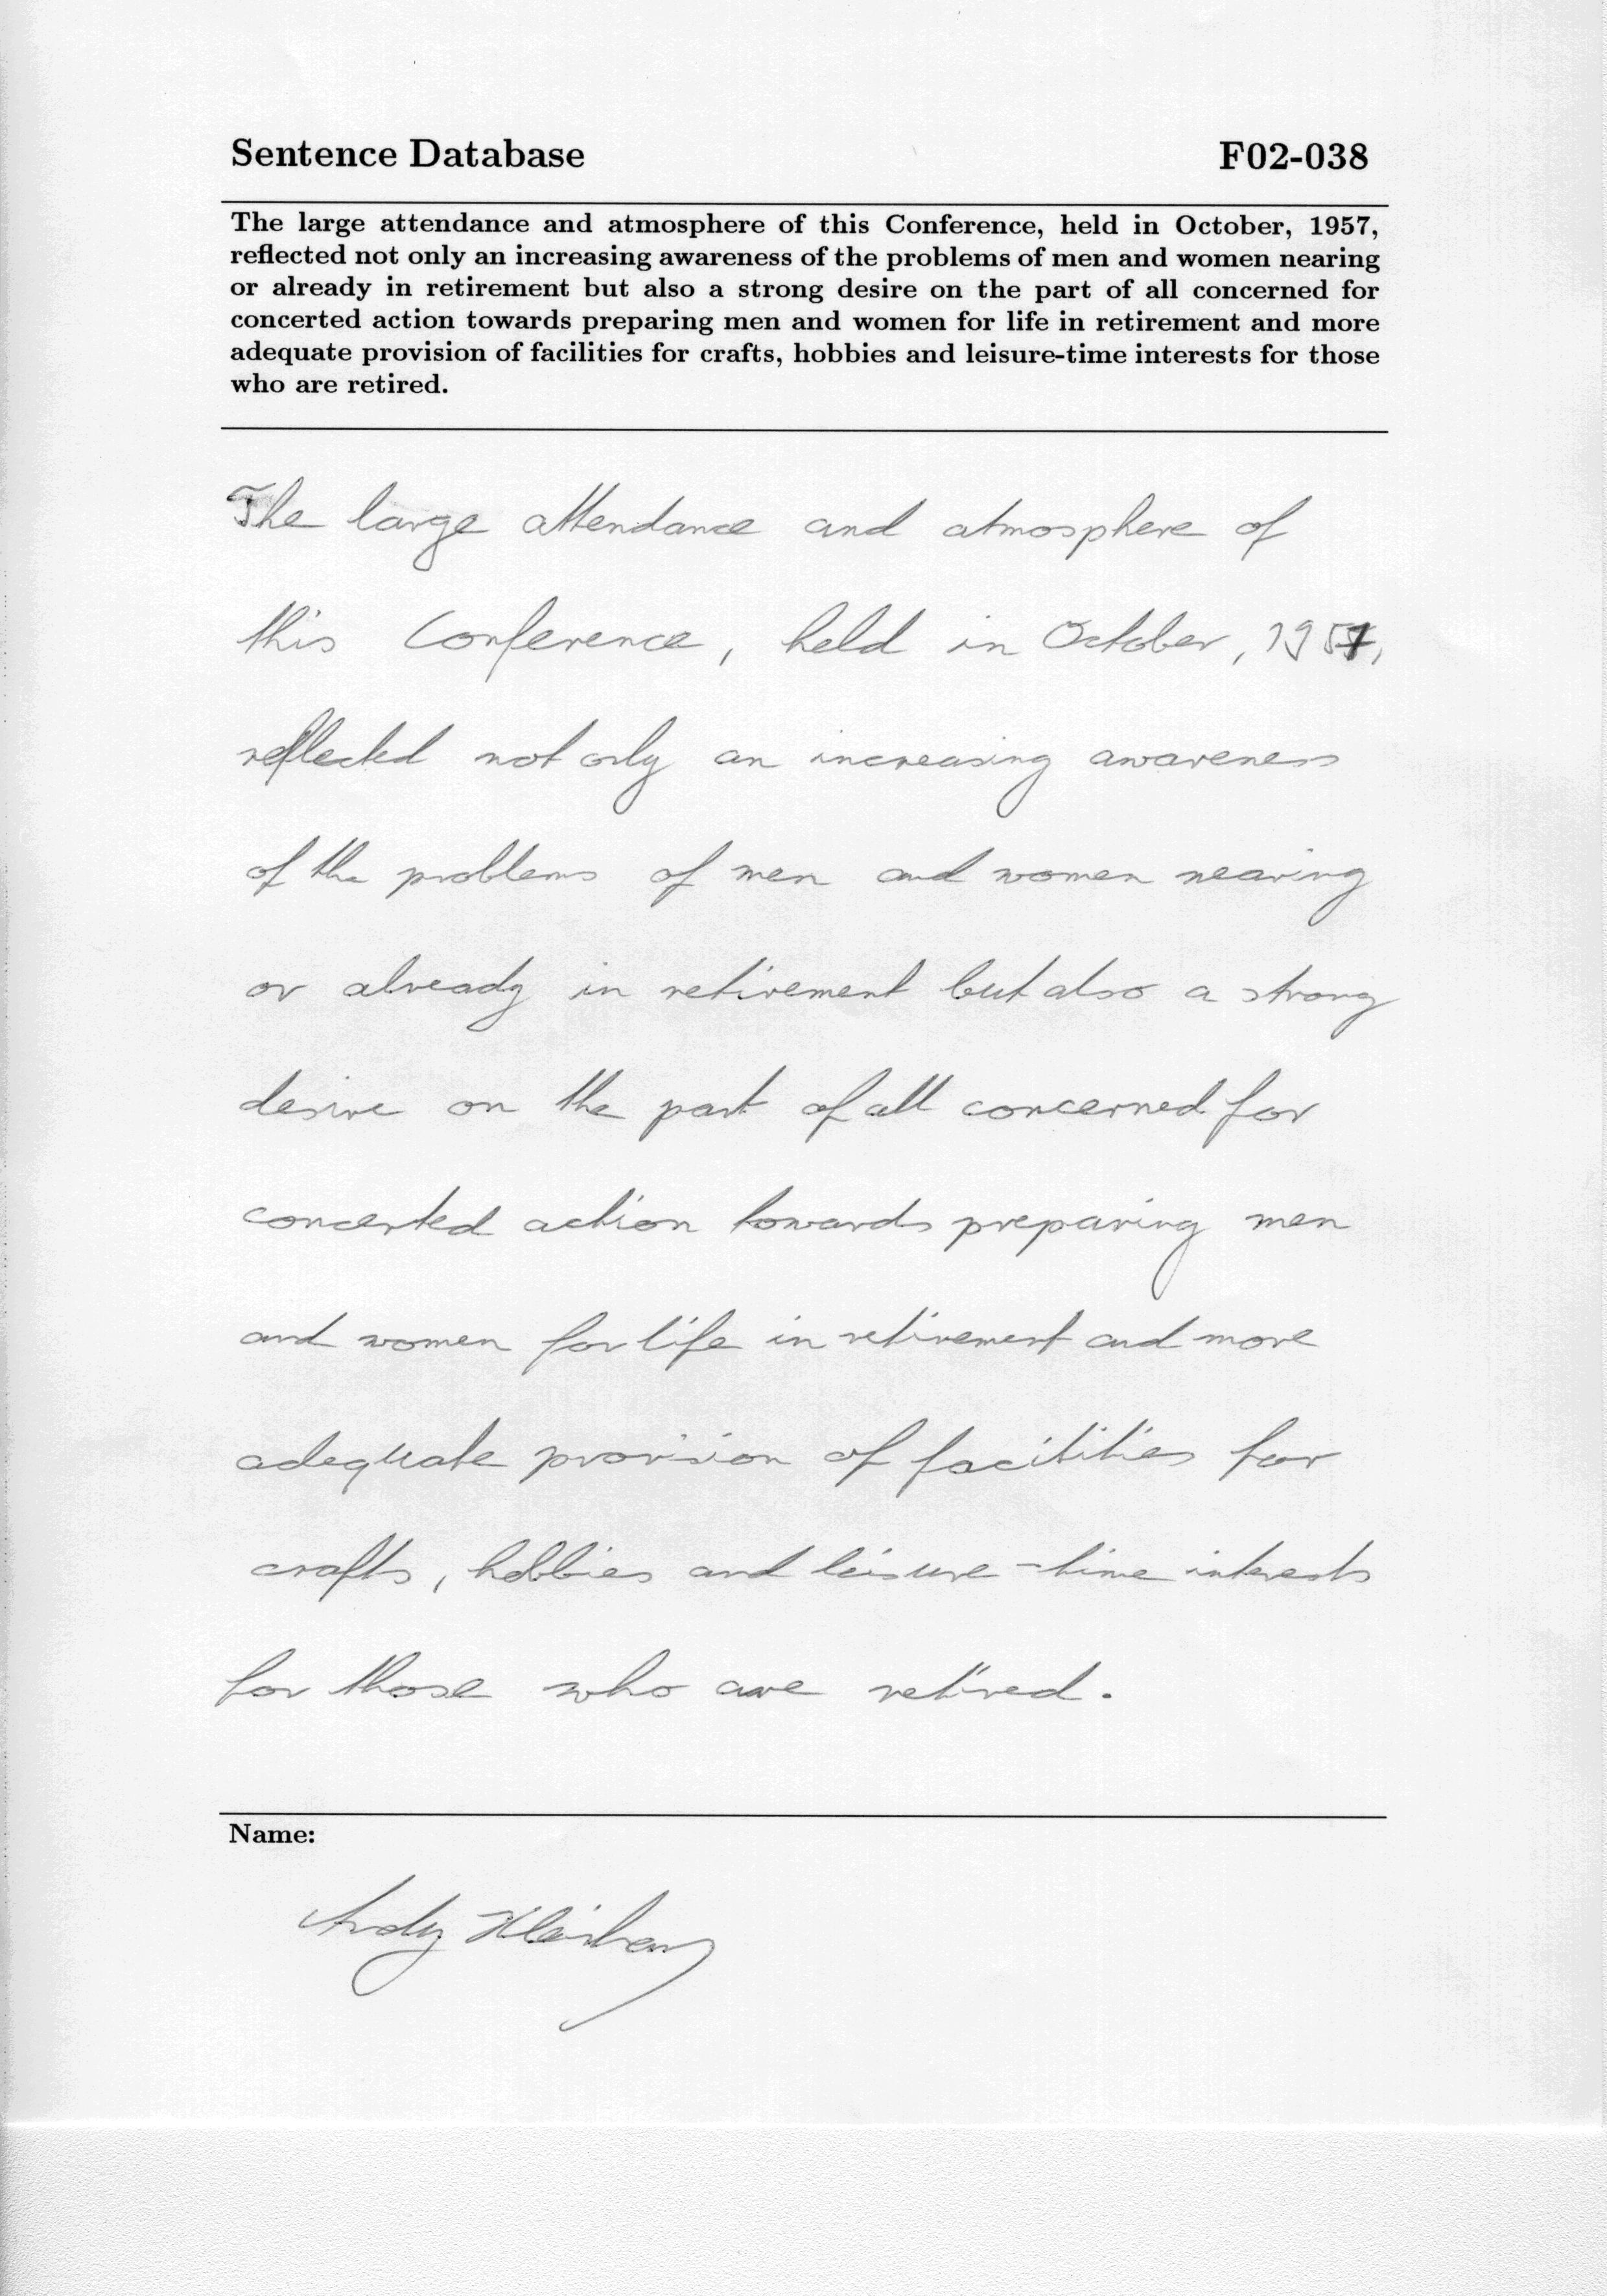 Sentence Database F02-038
The large attendance and atmosphere of this Conference, held in October, 1957,
reflected not only an increasing awareness of the problems of men and women nearing
or already in retirement but also a strong desire on the part of all concerned for
concerted action towards preparing men and women for life in retirement and more
adequate provision of facilities for crafts, hobbies and leisure-time interests for those
who are retired.
The large attendance and atmosphere of
this Conference, held in October, 1957,
reflected not only an increasing awareness
of the problems of men and women nearing
or already in retirement but also a strong
desire on the part of all concerned for
concerted action towards preparing men
and women for life in retirement and more
adequate provision of facilities for
crafts, hobbies and leisure-time interests
for those who are retired.
Name:
Andy